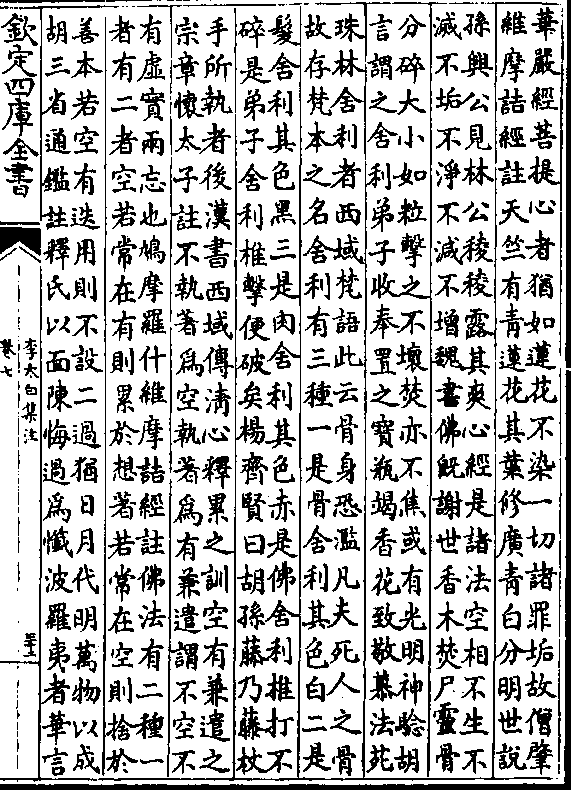 華嚴經菩提心者猶如蓮花不染一切諸罪垢故僧肇
維摩詰經註天竺有青蓮花其葉修廣青白分明世說
孫興公見林公稜稜露其爽心經是諸法空相不生不
滅不垢不淨不減不增魏書佛既謝世香木焚尸靈骨
分碎大小如粒擊之不壞焚亦不焦或有光明神驗胡
言謂之舍利弟子收奉置之寶瓶竭香花致敬慕法苑
珠林舍利者西域梵語此云骨身恐濫凡夫死人之骨
故存梵本之名舍利有三種一是骨舍利其色白二是
髮舍利其色黑三是肉舍利其色赤是佛舍利推打不
碎是弟子舍利椎擊便破矣楊齊賢曰胡孫藤乃藤杖
手所執者後漢書西域傳清心釋累之訓空有兼遣之
宗章懷太子註不執著為空執著為有兼遣謂不空不
有虛實兩忘也鳩摩羅什維摩詰經註佛法有二種一
者有二者空若常在有則累於想著若常在空則捨於
善本若空有迭用則不設二過猶日月代明萬物以成
胡三省通鑑註釋氏以面陳悔過為懺波羅夷者華言
欽定四庫全書
李太白集注
卷七